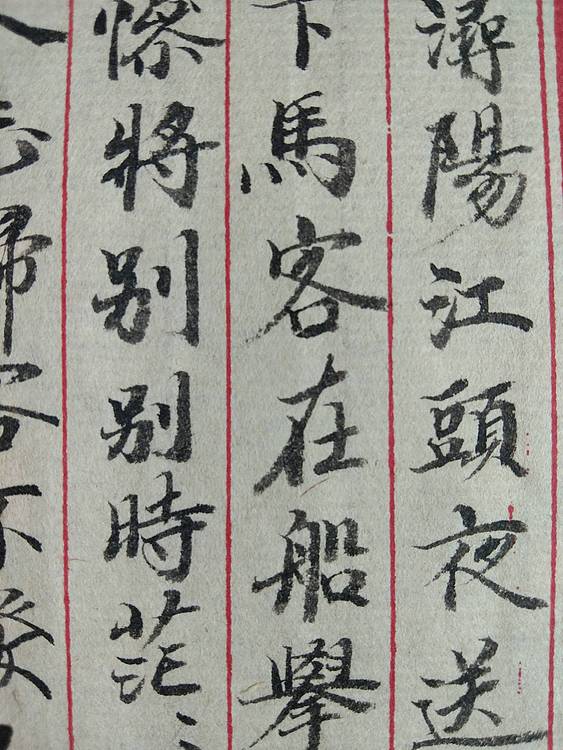 潯陽江頭夜送
下馬客在船舉
慘將别别時茫〻
人忘歸客不發